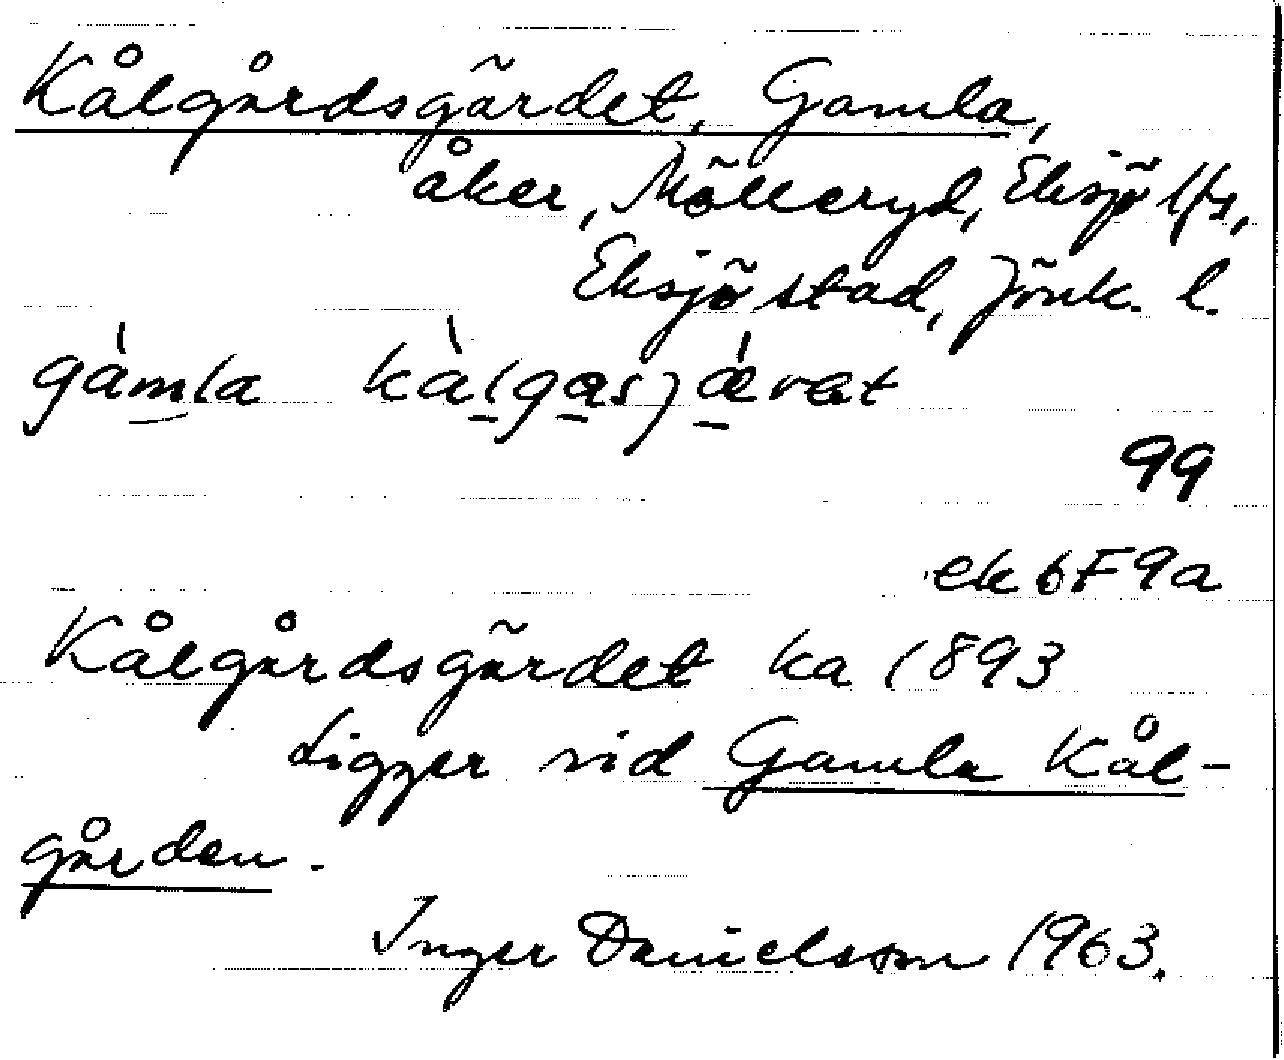 Kålgårdsgärdet, Gamla,
åker, Mölleryd, Eksjö lfs,
Eksjö stad, Jönk. l.
gàmla kàlgasjǽrat
99
ek 6F9a
Kålgårdsgärdet ka 1893
Ligger vid Gamla Kål-
gården.
Inger Danielsson 1963.